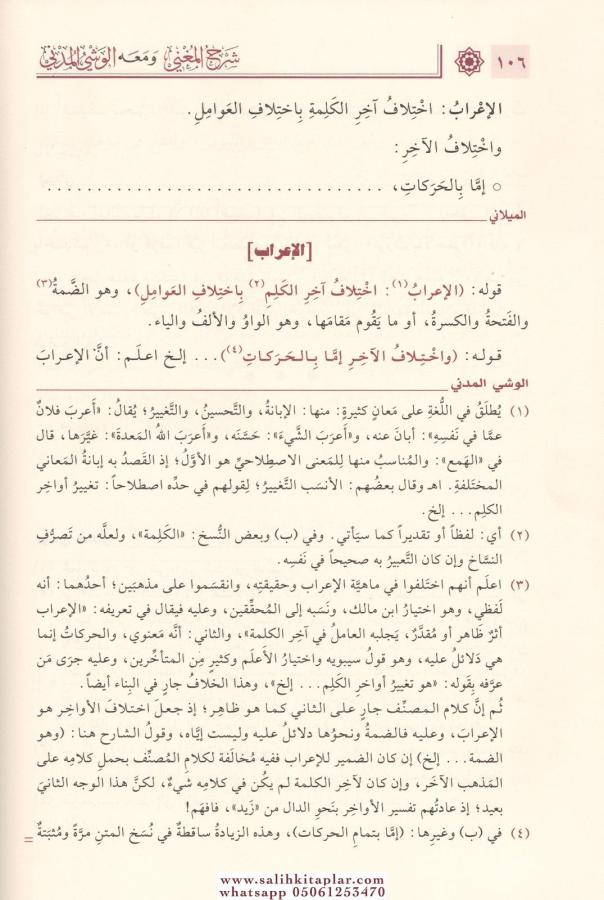 ١٠٦
شَرْحُ المُغْنِي وَمَعَه الوَشْيُ المَدَنِي
الإعْرابُ: اخْتِلافُ آخِرِ الكَلِمةِ بِاختِلافِ العَوامِلِ.
واخْتِلافُ الآخِرِ:
○ إمَّا بِالحَرَكاتِ، ................................
الميلاني
[الإعراب]
قوله: (الإعرابُ(١): اخْتِلافُ آخِرِ الكَلِمِ(٢) بِاختِلافِ العَوامِلِ)، وهو الضّمةُ(٣)
والفَتحةُ والكسرةُ، أو ما يَقُوم مَقامَها، وهو الواوُ والألفُ والياء.
قوله: (واخْتِلافُ الآخِرِ إمَّا بِالحَرَكاتِ(٤))... إلخ اعلَم: أنَّ الإعرابَ
الوشي المدني
(١) يُطلَقُ في اللُّغةِ على مَعانٍ كثيرةٍ: منها: الإبانةُ، والتَّحسينُ، والتَّغييرُ؛ يُقالُ: «أعربَ فلانٌ
عمَّا في نَفسِهِ»: أبانَ عنه، و«أعرَبَ الشَّيءَ»: حَسَّنَه، و«أعرَبَ اللهُ المَعدةَ»: غيَّرَها، قال
في «الهَمع»: والمُناسبُ منها لِلمَعنى الاصطِلاحيِّ هو الأوَّلُ؛ إذ القَصدُ به إبانةُ المَعاني
المختلفةِ. اهـ وقال بعضُهم: الأنسَب التَّغييرُ؛ لِقولهم في حدِّه اصطلاحاً: تغييرُ أواخِر
الكلِم... إلخ.
(٢) أي: لفظاً أو تقديراً كما سيَأتي. وفي (ب) وبعض النُّسخ: «الكَلِمة»، ولعلَّه من تَصرُّفِ
النسَّاخ وإن كان التَّعبيرُ به صحيحاً في نَفسِه.
(٣) اعلَم أنهم اختَلفوا في ماهيَّة الإعراب وحقيقتِه، وانقسَموا على مذهبَين؛ أحدُهما: أنه
لَفظي، وهو اختيارُ ابن مالك، ونَسَبه إلى المُحقِّقين، وعليه فيقال في تعريفه: «الإعراب
أثرٌ ظاهر أو مُقدَّرٌ، يَجلبه العاملُ في آخِر الكلمة»، والثاني: أنَّه مَعنوي، والحركاتُ إنما
هي دَلائلُ عليه، وهو قولُ سيبويه واختيارُ الأعلَم وكثيرٍ مِن المتأخِّرين، وعليه جرَى مَن
عرَّفه بِقَوله: «هو تغييرُ أواخرِ الكَلِم... إلخ»، وهذا الخلافُ جارٍ في البِناء أيضاً.
ثُم إنَّ كلام المصنِّف جارٍ على الثاني كما هو ظاهِر؛ إذ جعلَ اختلافَ الأواخِر هو
الإعرابَ، وعليه فالضمةُ ونحوُها دلائلُ عليه وليست إيَّاه، وقولُ الشارح هنا: (وهو
الضمة... إلخ) إن كان الضمير للإعراب ففيه مُخالَفة لكلامِ المُصنِّف بحملِ كلامِه على
المَذهب الآخَر، وإن كان لآخِر الكلمة لم يكُن في كلامِه شيءٌ، لكنَّ هذا الوجه الثانيَ
بعيد؛ إذ عادتُهم تفسير الأواخِر بنَحوِ الدال من «زَيد»، فافهَم!
(٤) في (ب) وغيرِها: (إمَّا بتمامِ الحركات)، وهذه الزيادةُ ساقطةٌ في نُسَخ المتنِ مرَّةً ومُثبَتةٌ =
www.salihkitaplar.com
whatsapp 05061253470